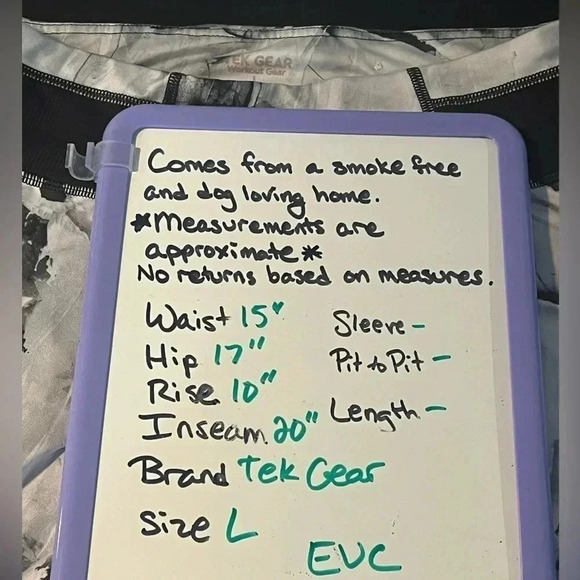 TEK GEAR
Workout Gear
L
Comes from a smoke free
and dog loving home.
*Measurements are
approximate*
No returns based on measures.
Waist 15"
Hip 17"
Rise 10"
Inseam 20"
Sleeve -
Pit to Pit -
Length -
Brand Tek Gear
Size L
EUC